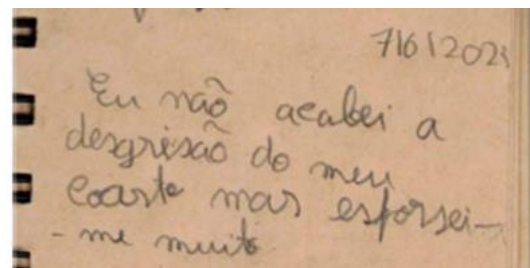 7/6/2021
Eu não acabei a
desgrisão do meu
coarto mas esforsei-
-me muito